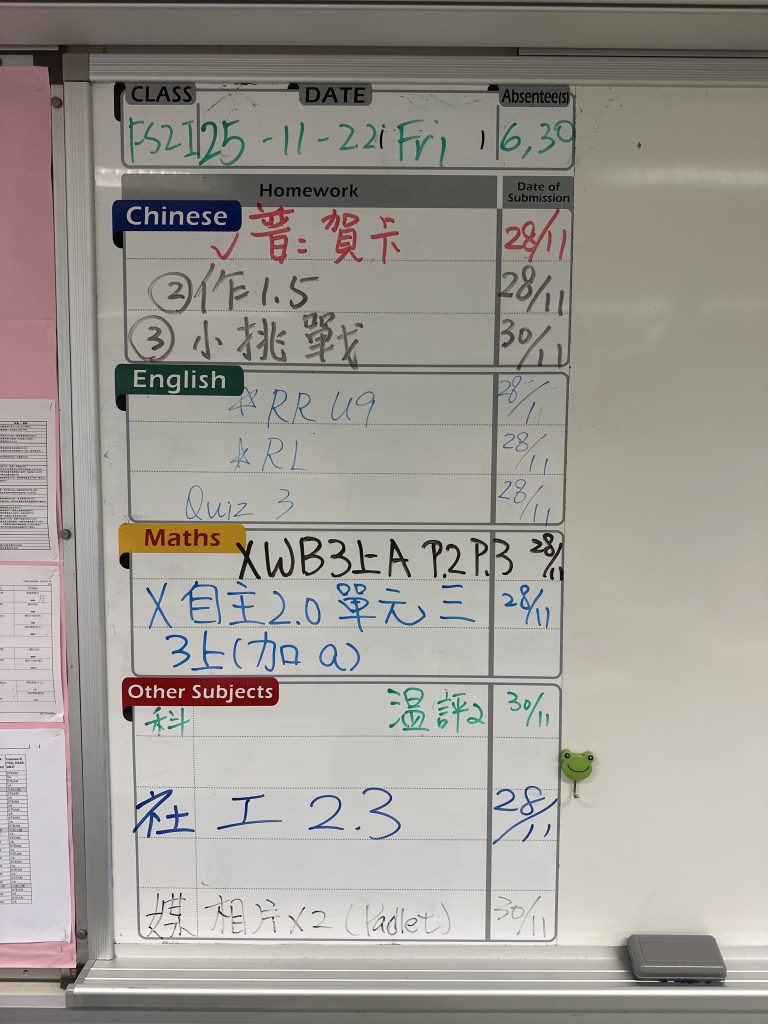 CLASS DATE Absentee(s)
25-11-22 (Fri) 6,30
Homework Date of Submission
Chinese
✓普：賀卡 28/11
②作1.5 28/11
③小挑戰 30/11
English
☆RR U9 28/11
☆RL 28/11
Quiz 3 28/11
Maths
XWB3上A P.2 P.3 28/11
X自主2.0單元三 28/11
3上(加a)
Other Subjects
科 溫評2 30/11
社 工2.3 28/11
媒 相片x2 (Padlet) 30/11